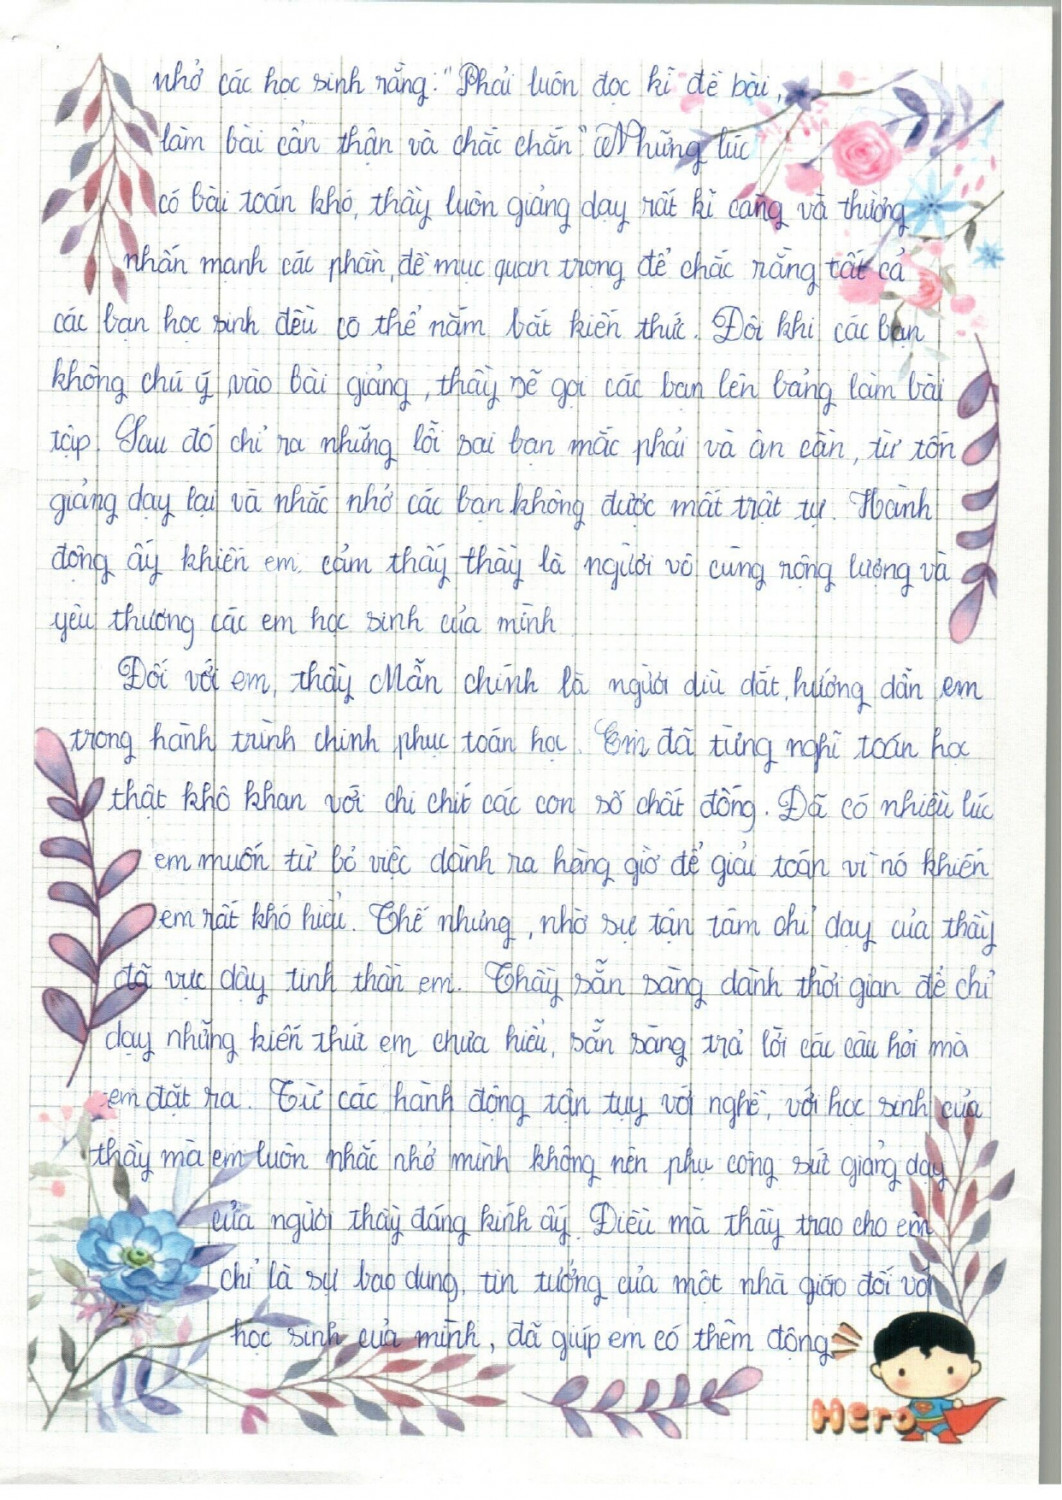 nhở các học sinh rằng: "Phải luôn đọc kĩ đề bài,
làm bài cẩn thận và chắc chắn" Những lúc
có bài toán khó, thầy luôn giảng dạy rất kĩ càng và thường
nhấn mạnh các phần, đề mục quan trọng để chắc rằng tất cả
các bạn học sinh đều có thể nắm bắt kiến thức. Đôi khi các bạn
không chú ý vào bài giảng, thầy sẽ gọi các bạn lên bảng làm bài
tập. Sau đó chỉ ra những lỗi sai bạn mắc phải và ân cần, từ tốn
giảng dạy lại và nhắc nhở các bạn không được mất trật tự. Hành
động ấy khiến em cảm thấy thầy là người vô cùng rộng lượng và
yêu thương các em học sinh của mình
Đối với em, thầy Mẫn chính là người dìu dắt, hướng dẫn em
trong hành trình chinh phục toán học. Em đã từng nghĩ toán học
thật khô khan với chi chít các con số chất đống. Đã có nhiều lúc
em muốn từ bỏ việc dành ra hàng giờ để giải toán vì nó khiến
em rất khó hiểu. Thế nhưng, nhờ sự tận tâm chỉ dạy của thầy
đã vực dậy tinh thần em. Thầy sẵn sàng dành thời gian để chỉ
dạy những kiến thức em chưa hiểu, sẵn sàng trả lời các câu hỏi mà
em đặt ra. Từ các hành động tận tụy với nghề, với học sinh của
thầy mà em luôn nhắc nhở mình không nên phụ công sức giảng dạy
của người thầy đáng kính ấy. Điều mà thầy trao cho em
chỉ là sự bao dung, tin tưởng của một nhà giáo đối với
học sinh của mình, đã giúp em có thêm động
Hero